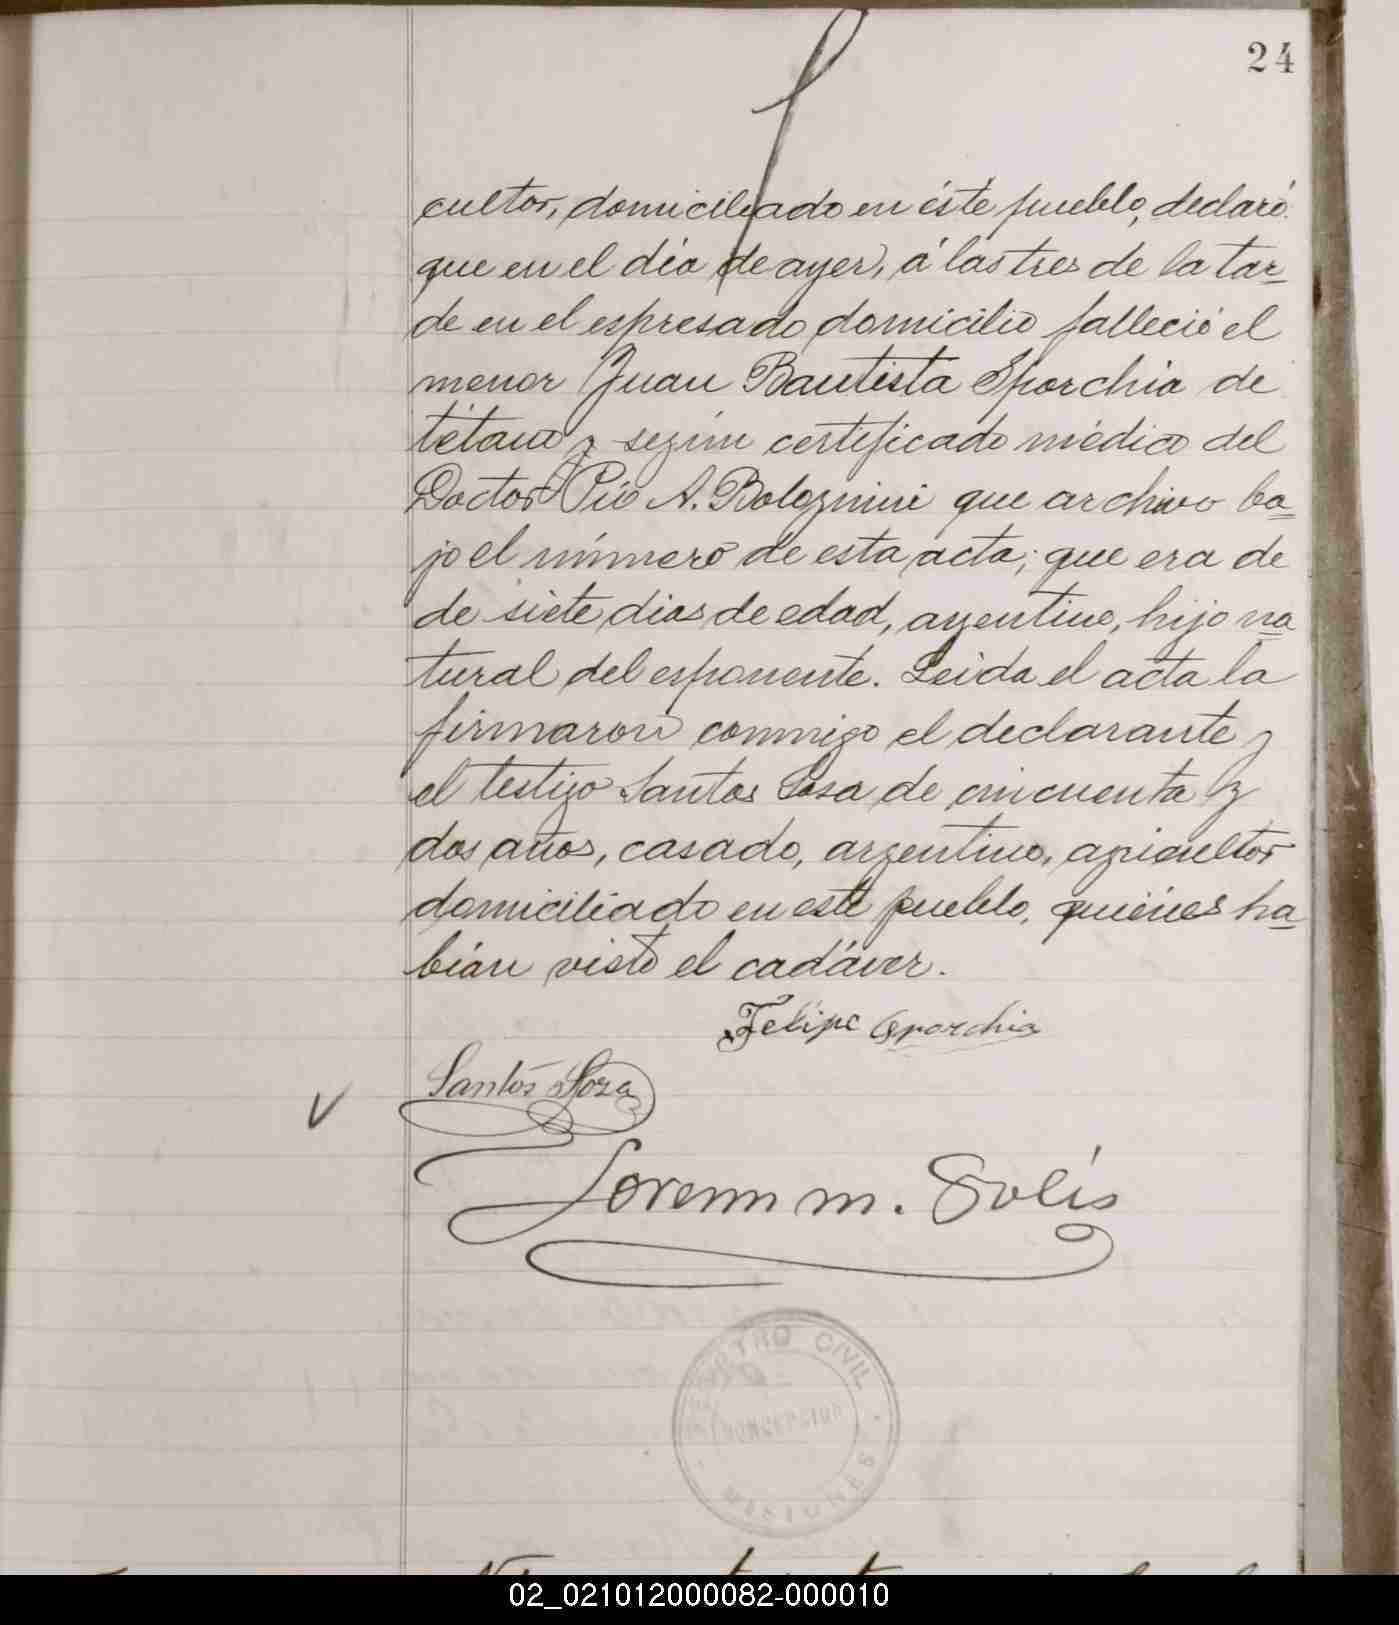 24
cultor, domiciliado en éste pueblo, declaró:
que en el día de ayer, á las tres de la tar=
de en el espresado domicilio falleció el
menor Juan Bautista Sporchia de
tétano, según certificado médico del
Doctor Pío A. Bolognini que archivo ba=
jo el número de esta acta; que era de
de siete dias de edad, argentino, hijo na=
tural del esponente. Leida el acta la
firmaron conmigo el declarante y
el testigo Santos Sosa de cincuenta y
dos años, casado, argentino, agricultor
domiciliado en este pueblo, quiénes ha=
bían visto el cadáver.
Felipe Sporchia
Santos Sosa
Lorenzo M. Solís
REGISTRO CIVIL
CONCEPCION
MISIONES
02_021012000082-000010